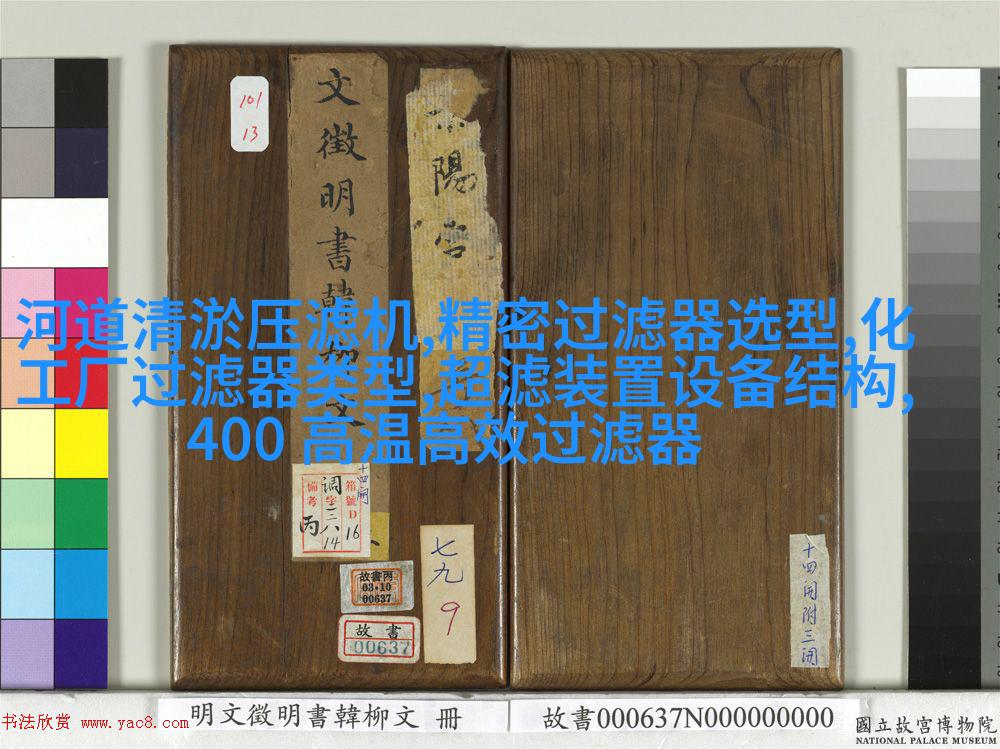 101
13
文徵明書韓柳文
陽宮
河道清淤压滤机,精密过滤器选型,化
工厂过滤器类型,超滤装置设备结构,
400 高温高效过滤器
十四開
箱號D
16
調字三八
14
備考
丙
故書丙
03·10
00637
故書
00637
七九
9
十四開附三開
明文徵明書韓柳文 冊
故書000637N000000000
書法欣赏 www.yac8.com
國立故宮博物院
NATIONAL PALACE MUSEUM